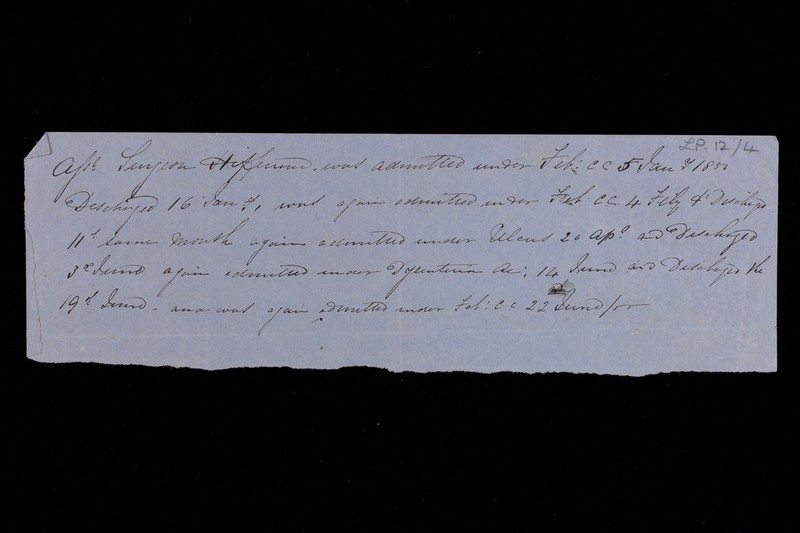 L.P. 12/4
Asst. Surgeon was admitted under Feb: C C 5 Jany 1850
Discharged 16 Jany, was again admitted under Feb. C C 4 Feby & Discharged
11th same Month again admitted under Ulcus 20 Apl and Discharged
3rd June again admitted under Dysenteria Ac: 14 June and Discharged the
19th June - and was again admitted under Feb: C C 22 June /50